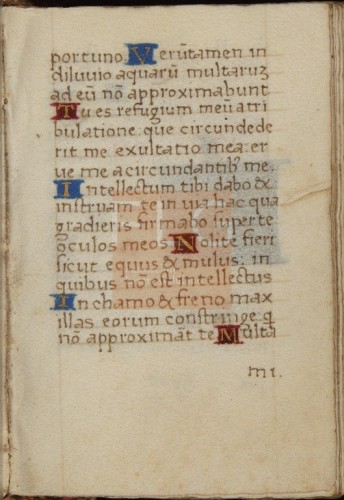 portuno. Verũtamen in
diluvio aquarũ multaruz
ad eũ nõ approximabunt
Tu es refugium meũ a tri
bulatione que circundede
rit me exultatio mea: er
ue me a circundantib᷒ me.
Intellectum tibi dabo &
instruam te in via hac qua
gradieris firmabo super te
oculos meos Nolite fieri
sicut equus & mulus: in
quibus nõ est intellectus
In chamo & freno max
illas eorum constringe q
nõ approximãt te Multa
mi.